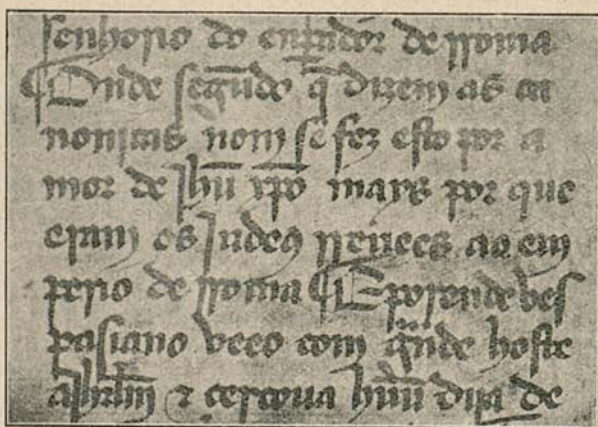 senhorio do enp̄ador de rroma
¶ Onde segūdo q̄ dizem as ca
nonicas nom se fez esto por a
mor de Jhū xp̄o mays por que
eram os Judeꝯ rreuees ao em
perio de rroma ¶ E porende ves
pasiano veeo com gn̄de hoste
a Jhrlm̄ ⁊ cercoua hūu dia de